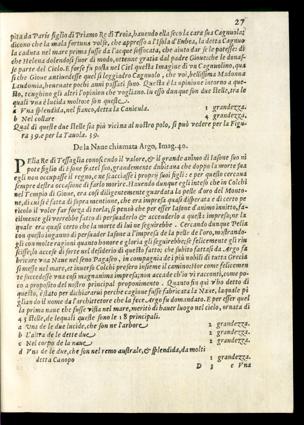 27
pita da Paris figlio di Priamo Re di Troia, hauendo ella seco la cara sua Cagnuola;
dicono che la mala fortuna volse, che appresso a l'Isola d'Eubea, la detta Cagno
la caduta nel mare prima fusse da l'acque soffocata, che aiuto dar se le potesse: di
che Helena dolendosi fuor di modo, ottenne gratia dal padre Gioue che le donas-
se parte del Cielo. E forse fu posta nel Ciel questa Imagine di un Cagnuolino, qua
si che Gioue antiuedesse quel sì leggiadro Cagnuolo, che voi, bellissima Madonna
Laudomia, haueuate pochi anni passati sono. Questa è l'opinione intorno a que-
sto, tenghino gli altri l'openion che vogliano. In esso dunque son due stelle, tra le
quali vna è lucida molto e son queste.
a Vna splendida, nel fianco, detta la Canicula. 1 grandezza.
b Nel collare 4 grandezza.
Qual di queste due Stelle sia più vicina al nostro polo, si può vedere per la Figu-
ra 39. e per la Tauola. 39.
De la Naue chiamata Argo, Imag. 40.
PElia Re di Tessaglia conoscendo il valore, & il grande animo di Iasone suo ni
pote figlio di Esone fratel suo, grandemente dubitaua che doppo la morte sua
egli non occuppasse il regno, e ne scacciasse i proprij suoi figli: e per questo cercaua
sempre destra occasione di farlo morire. Hauendo dunque egli inteso che in Colchi
nel Tempio di Gioue, era cosi diligentemente guardata la pelle d'oro del Monto-
ne, di cui s'è fatta di sopra mentione, che era impresa quasi disperata e di certo pe
ricolo il voler far forza di torla; si pensò che per esser Iasone d'animo inuitto, fa-
cilmente gli verrebbe fatto di persuaderlo & accenderlo a questa impresa, ne la
quale era quasi certo che la morte di lui ne seguirebbe. Cercando dunque Pelia
con questo inganno di persuader Iasone a l'impresa de la pelle de l'oro, mostrando-
gli con molte ragioni quanto honore e gloria gli seguirebbe; se felicemente gli riu
scisse, lo accese di molto desiderio di questo fatto; che subito fattosi da Argo fa
bricare vna Naue nel seno Pagaseo, in compagnia de i più nobili di tutta Grecia
si messe nel mare, et inuerso Colchi presero insieme il camino: hor come felicemen
te succedesse vna così magnanima impresa; non accade ch'io vi racconti, come po-
co a proposito del nostro principal proponimento. Quanto fin quì v'ho detto di
questo, è stato per dichiararui perche cagione fusse fabricata la Naue, la quale pi
gliando il nome da l'architettore che la fece, Argo fu domandata. E per esser quel
la prima naue che fusse vista nel mare, meritò di hauer luogo nel cielo, ornata di
45 stelle, de le quali queste sono le 18 principali.
a Vna de le due lucide, che son ne l'arbore 2 grandezza.
b L'altra de le dette due 2 grandezza.
c Nel corpo de la naue 2 grandezza.
d Vna de le due, che son nel remo australe, & splendida, da molti
detta Canopo 1 grandezza.
D 3 e Vna